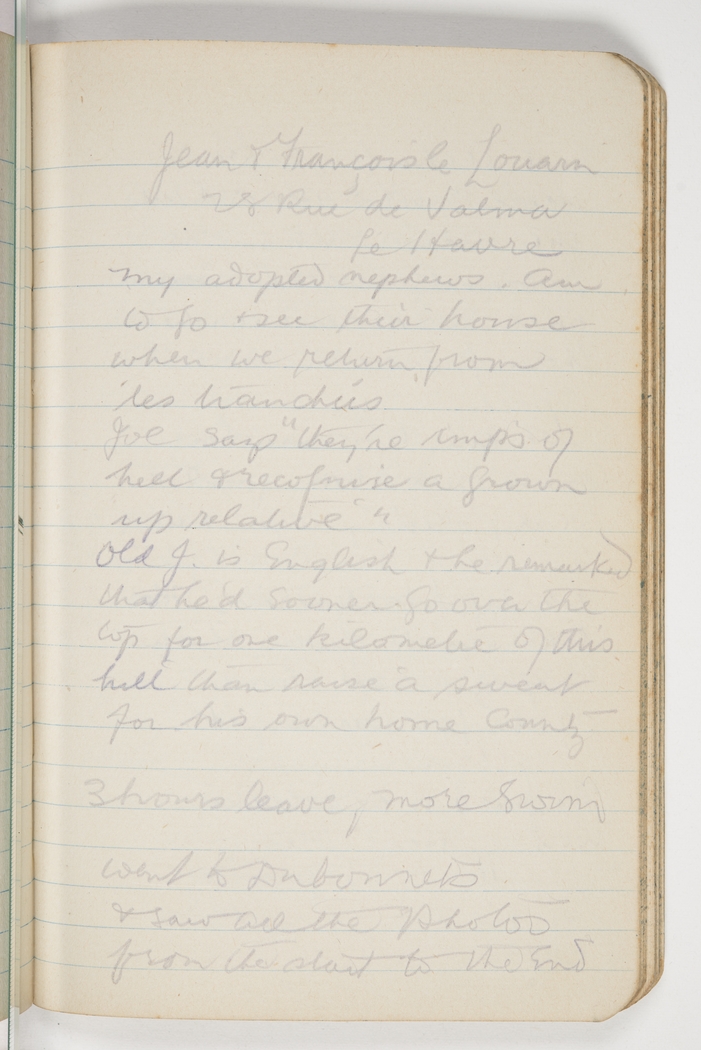 Jean & François le Louarn
28 Rue de Valma
le Havre
my adopted nephews. Am
to go & see their house
when we return from
'les tranchées
Joe says "they're imps of
hell & recognise a grown
up relative" "
Old J. is English & he remarked
that he'd sooner go over the
top for one kilometre of this
hill than raise a sweat
for his own home County
3 hours leave, more swims
went to Dubonnets
& saw all the photos
from the start to the End